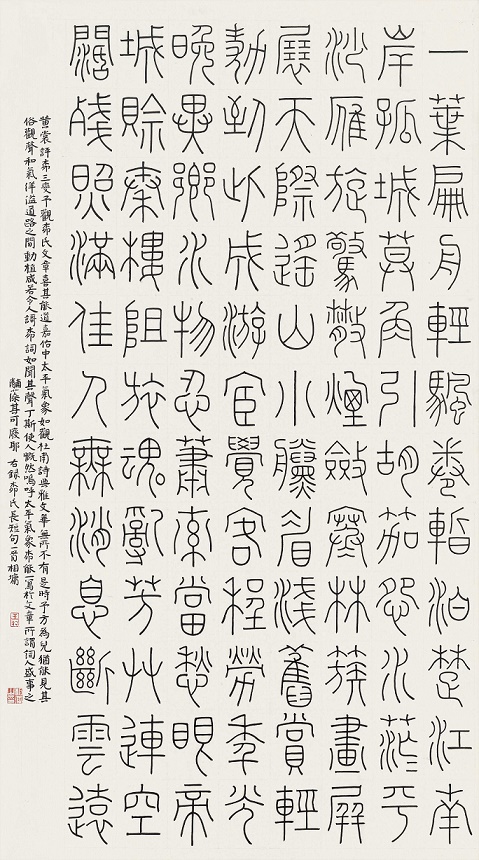 一葉扁舟輕颿卷暫泊楚江南
岸孤城莫角引胡笳怨水茫=平
沙雁旋驚散煙斂寒林簇畫屏
展天際遙山小黱眉淺舊賞輕
拋到此成游宦覺客程勞年光
晚異鄉水物忍蕭索當愁眼帝
城賒秦樓阻旅魂亂芳艸連空
闊殘照滿佳人無消息斷雲遠
黄裳評柳三變予觀柳氏文章喜其能道嘉佑中太平氣象如觀杜甫詩典雅文華無所不有是時予方為兒猶能見其
俗觀聲和氣洋溢道路之間動植咸若令人謌柳詞如聞其聲丁斯使人慨然嗚呼太平氣象柳能一寫於文章所謂詞人盛事之
黼藻其可廢耶 右録柳氏長短句一首 相墉